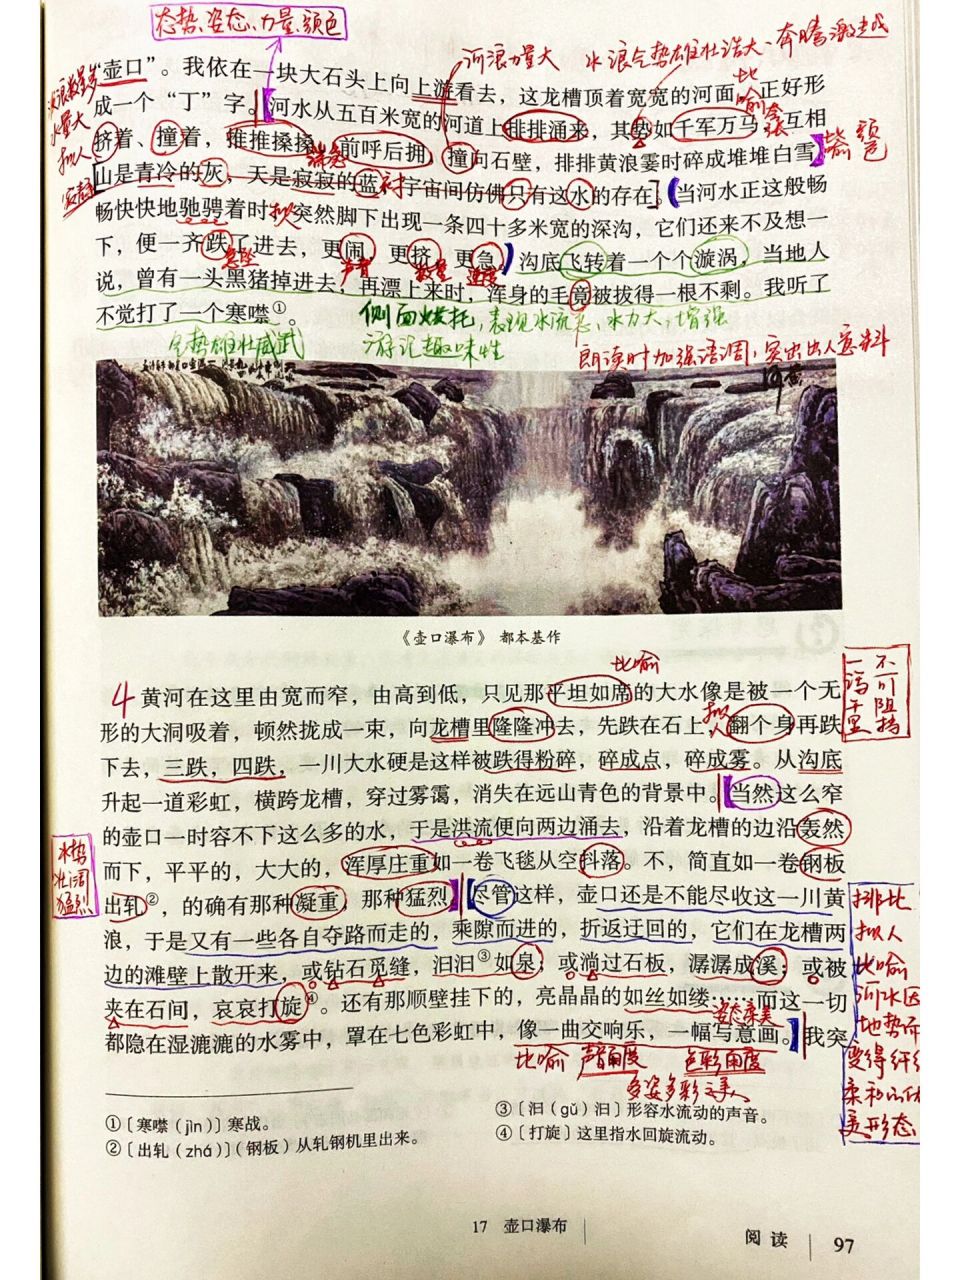 态势、姿态、力量、颜色
河浪力量大
水浪气势雄壮浩大、奔腾激越
“壶口”。我依在一块大石头上向上游看去，这龙槽顶着宽宽的河面，正好形
比喻
成一个“丁”字。河水从五百米宽的河道上排排涌来，其势如千军万马，互相
水量大
拟人
挤着、撞着，推推搡搡，前呼后拥，撞向石壁，排排黄浪霎时碎成堆堆白雪。
颜色
山是青冷的灰，天是寂寂的蓝，宇宙间仿佛只有这水的存在。当河水正这般畅
安静
衬
畅快快地驰骋着时，突然脚下出现一条四十多米宽的深沟，它们还来不及想一
下，便一齐跌了进去，更闹，更挤，更急。沟底飞转着一个个漩涡，当地人
声音
数量
速度
说，曾有一头黑猪掉进去，再漂上来时，浑身的毛竟被拔得一根不剩。我听了
不觉打了一个寒噤①。
侧面烘托，表现水流急、水力大，增强
气势雄壮威武
游记趣味性
朗读时加强语调，突出出人意料
《壶口瀑布》 都本基作
比喻
4 黄河在这里由宽而窄，由高到低，只见那平坦如席的大水像是被一个无
不可阻挡
一泻千里
形的大洞吸着，顿然拢成一束，向龙槽里隆隆冲去，先跌在石上，翻个身再跌
拟人
下去，三跌，四跌，一川大水硬是这样被跌得粉碎，碎成点，碎成雾。从沟底
升起一道彩虹，横跨龙槽，穿过雾霭，消失在远山青色的背景中。当然这么窄
的壶口一时容不下这么多的水，于是洪流便向两边涌去，沿着龙槽的边沿轰然
水势
壮阔
猛烈
而下，平平的，大大的，浑厚庄重如一卷飞毯从空抖落。不，简直如一卷钢板
出轧②，的确有那种凝重，那种猛烈。尽管这样，壶口还是不能尽收这一川黄
浪，于是又有一些各自夺路而走的，乘隙而进的，折返迂回的，它们在龙槽两
边的滩壁上散开来，或钻石觅缝，汩汩③如泉；或淌过石板，潺潺成溪；或被
夹在石间，哀哀打旋④。还有那顺壁挂下的，亮晶晶的如丝如缕……而这一切
姿态柔美
都隐在湿漉漉的水雾中，罩在七色彩虹中，像一曲交响乐，一幅写意画。我突
比喻 声音角度 色彩角度
多姿多彩之美
排比
拟人
比喻
河水因
地势而
变得纤细
柔和的优
美形态
①〔寒噤（jìn）〕寒战。
②〔出轧（zhá）〕（钢板）从轧钢机里出来。
③〔汩（gǔ）汩〕形容水流动的声音。
④〔打旋〕这里指水回旋流动。
17 壶口瀑布
阅读 97